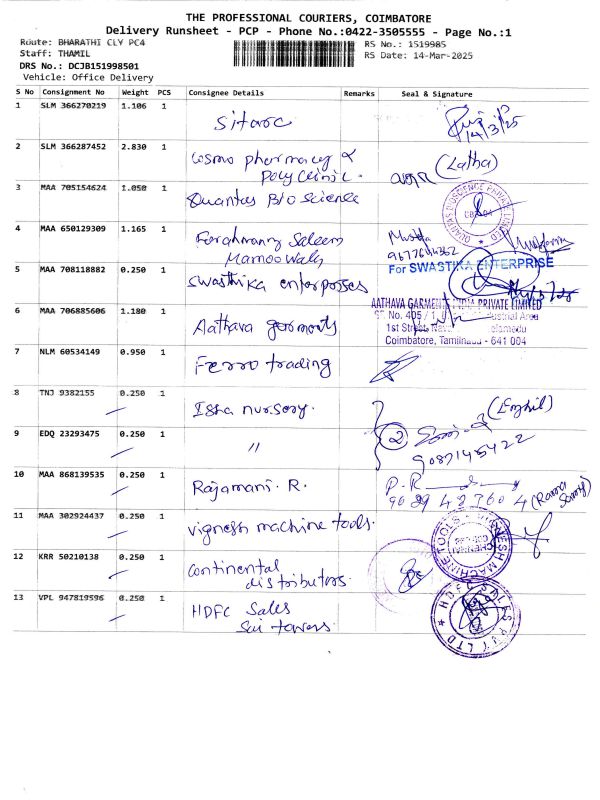 THE PROFESSIONAL COURIERS, COIMBATORE
Delivery Runsheet - PCP - Phone No.:0422-3505555 - Page No.:1
Route: BHARATHI CLY PC4
RS No.: 1519985
Staff: THAMIL
RS Date: 14-Mar-2025
DRS No.: DCJB151998501
Vehicle: Office Delivery
S No Consignment No Weight PCS Consignee Details Remarks Seal & Signature
1 SLM 366270219 1.106 1
14/3/25
2 SLM 366287452 2.830 1 Cosmo pharmacy &
Poly Clinic. (Latha)
3 MAA 705154624 1.050 1 Quantas Bio science
QUANTAS BIOSCIENCE PRIVATE LIMITED
4 MAA 650129309 1.165 1 Saleem
5 MAA 708118882 0.250 1 Swasthika enterprises
For SWASTIKA ENTERPRISE
6 MAA 706885606 1.180 1 Aathava garments
AATHAVA GARMENTS INDIA PRIVATE LIMITED
SF. No. 405 / 1, Industrial Area
1st Street,
Coimbatore, Tamilnadu - 641 004
7 NLM 60534149 0.950 1 Ferro trading
8 TNJ 9382155 0.250 1 Isha nursery.
9 EDQ 23293475 0.250 1 "
2
9087145422
10 MAA 868139535 0.250 1 Rajamani. R.
P.R
11 MAA 302924437 0.250 1 vignesh machine tools.
VIGNESH MACHINE TOOLS
12 KRR 50210138 0.250 1 continental
distributors.
13 VPL 947819596 0.250 1 HDFC Sales
Sai towers.
HDFC SALES PVT LTD